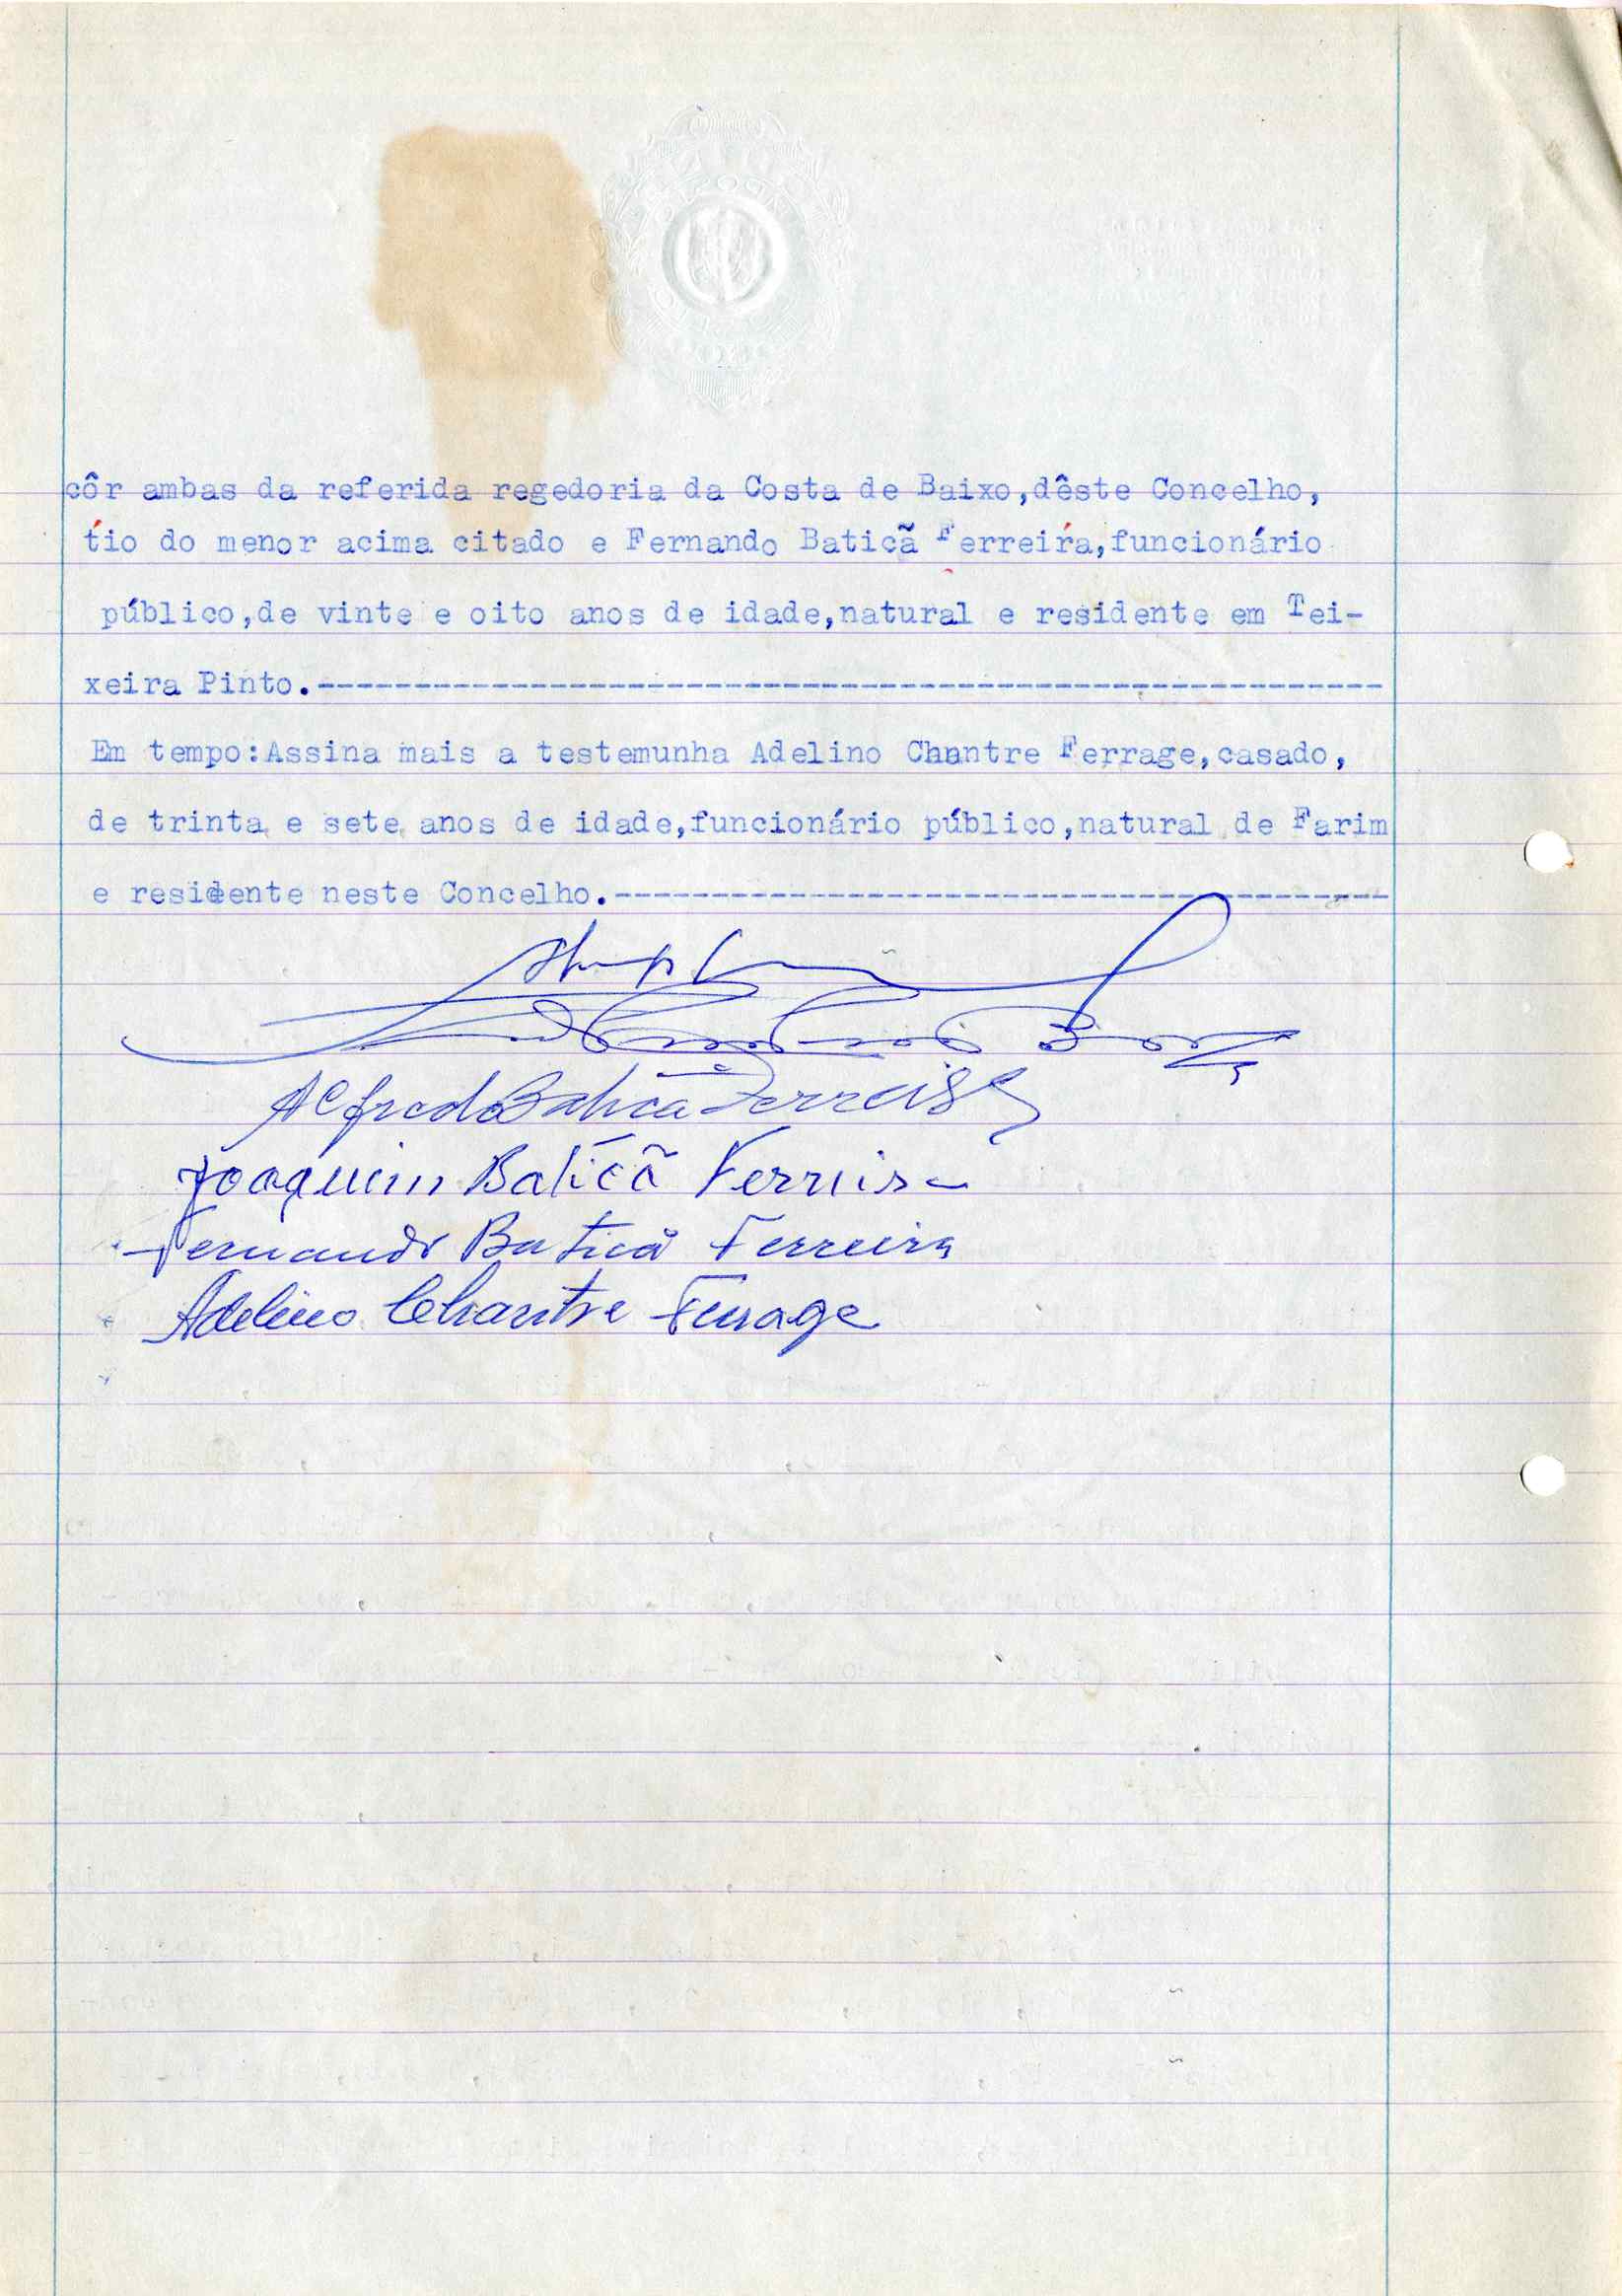 côr ambas da referida regedoria da Costa de Baixo,dêste Concelho,
tio do menor acima citado e Fernando Baticã Ferreira,funcionário
público,de vinte e oito anos de idade,natural e residente em Tei-
xeira Pinto.------------------------------------------------------
Em tempo:Assina mais a testemunha Adelino Chantre Ferrage,casado,
de trinta e sete anos de idade,funcionário público,natural de Farim
e residente neste Concelho.---------------------------------------
Alfredo Baticã Ferreira
Joaquim Baticã Ferreira
Fernando Baticã Ferreira
Adelino Chantre Ferrage